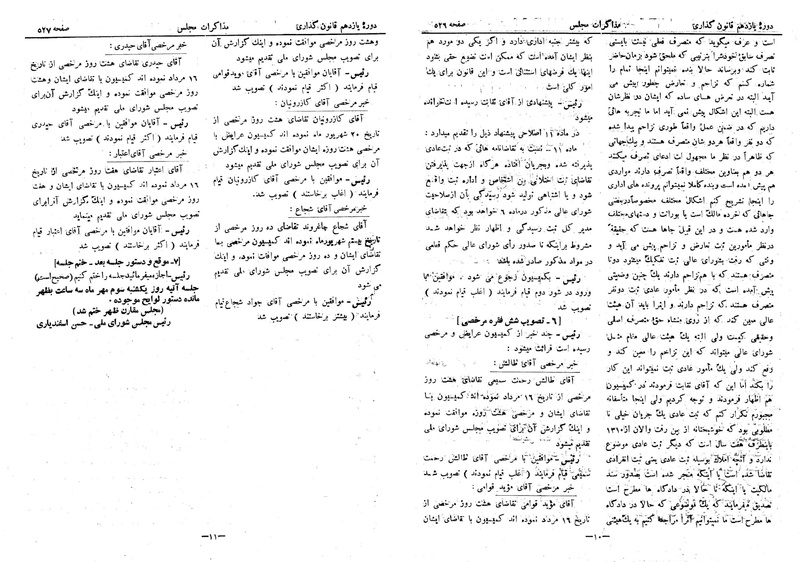 دورهٔ یازدهم قانون گذاری مذاکرات مجلس صفحه ۵۲۶
است و عرف میگوید که متصرف فعلی نیست بایستی
تصرف سابق خودش را بترتیبی که ملحق شود بزمان حاضر
ثابت کند و برساند حالا بنده نمیتوانم اینجا تمام را
شماره کنم که تزاحم و تعارض چطور پیش می
آید البته در تعرض های ساده که ایشان در نظرشان
هست البته این اشکال پیش نمی آید اما ما تجربه هائی
داریم که در ضمن عمل واقعاً طوری تزاحم پیدا شده
که دو نفر واقعاً هر دو شان متصرف هستند و یک جهاتی
که ظاهراً در نظر ما مجهول است ادعای تصرف میکنند
هر دو هم بعناوین مختلف واقعاً تصرف دارند مواردی
هم پیش آمده است و بنده کاملا نمیتوانم پرونده های اداری
را اینجا تشریح کنم اشکال مختلف مخصوصاً در بعضی
جاهائی که خرده مالک است یا بوراثت و دستهای مختلف
وارد شده است و در این قبیل جاها هست که حقیقة
در نظر مأمورین ثبت تعارض و تزاحم پیش می آید و
وقتی که رفت بشورای عالی ثبت تفکیک میشود دو تا
متصرف هستند که با هم تزاحم دارند یک چنین وضعیتی
پیش آمده است که در نظر مأمورین عادی ثبت دو نفر
متصرف هستند که تزاحم دارند و اینرا باید آن هیئت
عالی معین کند که از روی منشاء حق متصرف اصلی
وحقیقی کیست ولی البته یک هیئت عالی مقام مثل
شورای عالی میتواند که این تزاحم را معین کند و
رفع کند ولی یک مأمور عادی ثبت نمیتواند این کار
را بکند اما این که آقای نقابت فرمودند در کمیسیون
هم اظهار فرمودند و توجه کردیم ولی اینجا متأسفانه
مجبورم تکرار کنم که ثبت عادی یک جریان خیلی نا
مطلوبی بود که خوشبختانه از بین رفت والان از ۱۳۱۰
باینطرف هفت سال است که دیگر ثبت عادی موضوع
ندارد و آنچه املاک بوسیله ثبت عادی یعنی ثبت انفرادی
تقاضا شده است یا اینکه منجر شده است بصدور سند
مالکیت یا اینکه تا حالا در دادگاه ها مطرح است
تصدیق میفرمایند که یک موضوعی که حالا در دادگاه
ها مطرح است ما نمیتوانیم آنرا مراجعه کنیم به یک هیئتی
که بیشتر جنبه اداری دارد و اگر یکی دو مورد هم
بنظر ایشان آمده است که ممکن است تضییع حقی بشود
اینها یک فرضهای استثنائی است و این قانون برای یک
امور کلی است
رئیس - پیشنهادی از آقای نقابت رسیده است خوانده
میشود :
در ماده ۱۱ اصلاحی پیشنهاد ذیل را تقدیم میدارد :
ماده ۱۱ - نسبت به تقاضانامه هائی که در ثبت عادی
پذیرفته شده وبجریان افتاده هرگاه از جهت پذیرفتن
تقاضای ثبت اختلافی بین اشخاص و اداره ثبت واقع
شود و یا اشتباهی تولید شود رسیدگی بآن از صلاحیت
شورای عالی مذکور در ماده ۶ خواهد بود که بتقاضای
مدیر کل ثبت رسیدگی و اظهار نظر خواهد شد
مشروط براینکه تا صدور رأی شورای عالی حکم قطعی
در مواد مذکور صادر نشده باشد
رئیس - بکمیسیون رجوع می شود . موافقین با
ورود در شور دوم قیام فرمایند ( اغلب قیام نمودند )
تصویب شد
[ ۶ - تصویب شش فقره مرخصی ]
رئیس - چند خبر از کمیسیون عرایض و مرخصی
رسیده است قرائت میشود :
خبر مرخصی آقای طالش :
آقای طالش رحمت سمیعی تقاضای هشت روز
مرخصی از تاریخ ۱۶ مرداد نموده که کمیسیون با
تقاضای ایشان و مرخصی هشت روزه موافقت نموده
و اینک گزارش آن برای تصویب مجلس شورای ملی
تقدیم میشود
رئیس - موافقین با مرخصی آقای طالش رحمت
سمیعی قیام فرمایند ( اغلب قیام نمودند ) تصویب شد
خبر مرخصی آقای مؤید قوامی :
آقای مؤید قوامی تقاضای هشت روز مرخصی از
تاریخ ۱۶ مرداد نموده اند که کمیسیون با تقاضای ایشان
—۱۰—
دورهٔ یازدهم قانون گذاری مذاکرات مجلس صفحه ۵۲۷
وهشت روز مرخصی موافقت نموده و اینک گزارش آن
برای تصویب مجلس شورای ملی تقدیم میشود
رئیس - آقایان موافقین با مرخصی آقای مؤید قوامی
قیام فرمایند ( اکثر قیام نمودند ) تصویب شد
خبر مرخصی آقای کازرونیان :
آقای کازرونیان تقاضای هشت روز مرخصی از
تاریخ ۲۰ شهریور ماه نموده اند کمیسیون عرایض با
مرخصی هشت روزه ایشان موافقت نموده و اینک گزارش
آن برای تصویب مجلس شورای ملی تقدیم میشود .
رئیس - موافقین با مرخصی آقای کازرونیان قیام
فرمایند ( اغلب برخاستند ) تصویب شد
خبر مرخصی آقای شجاع :
آقای شجاع چاغروند تقاضای ده روز مرخصی از
تاریخ بیستم شهریور ماه نموده اند که کمیسیون مرخصی با
تقاضای ایشان و مرخصی ده روزه موافقت نموده و اینک
گزارش آن برای تصویب مجلس شورای ملی تقدیم
می شود
رئیس - موافقین با مرخصی آقای جواد شجاع قیام
فرمایند ( بیشتر برخاستند ) تصویب شد
خبر مرخصی آقای حیدری :
آقای حیدری تقاضای هشت روز مرخصی از تاریخ
۱۶ مرداد نموده اند کمیسیون با تقاضای ایشان وهشت
روز مرخصی موافقت نموده و اینک گزارش آن برای
تصویب مجلس شورای ملی تقدیم میشود
رئیس - آقایان موافقین با مرخصی آقای حیدری
قیام فرمایند ( اکثر قیام نمودند ) تصویب شد
خبر مرخصی آقای اعتبار :
آقای اعتبار تقاضای هشت روز مرخصی از تاریخ
۱۶ مرداد نموده اند کمیسیون با تقاضای ایشان و هشت
روز مرخصی موافقت نموده و اینک گزارش آنرا برای
تصویب مجلس شورای ملی تقدیم مینماید
رئیس - آقایان موافقین با مرخصی آقای اعتبار قیام
فرمایند ( اکثر برخاستند ) تصویب شد
[ ۷- موقع و دستور جلسه بعد - ختم جلسه ]
رئیس - اجازه میفرمائید جلسه را ختم کنیم (صحیح است)
جلسه آتیه روز یکشنبه سوم مهر ماه سه ساعت بظهر
مانده دستور لوایح موجوده .
(مجلس مقارن ظهر ختم شد)
رئیس مجلس شورای ملی - حسن اسفندیاری
—۱۱—